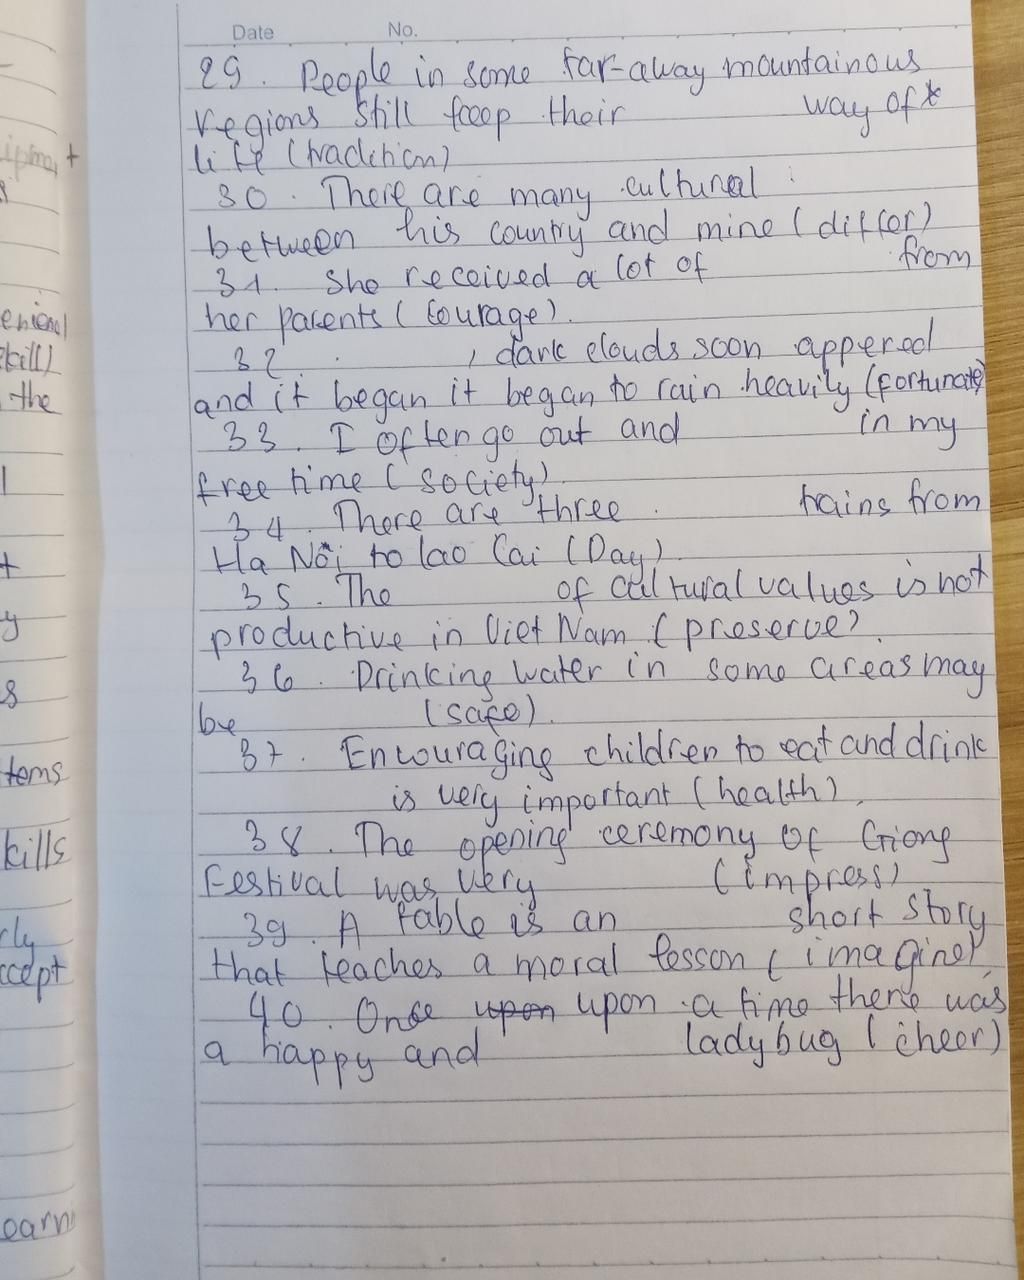 Date No.
29. People in some far-away mountainous
regions still keep their way of
life (tradition)
30. There are many cultural
between his country and mine (differ)
31. She received a lot of from
her parents (courage).
32. , dark clouds soon appered
and it began it began to rain heavily (fortunate)
33. I often go out and in my
free time (society)
34. There are three trains from
Ha Nội to lao Cai (Day)
35. The of cultural values is not
productive in Viet Nam (preserve).
36. Drinking water in some areas may
be (safe).
37. Encouraging children to eat and drink
is very important (health).
38. The opening ceremony of Giong
Festival was very (impress)
39. A fable is an short story
that teaches a moral lesson (imagine)
40. Once upon upon a time there was
a happy and ladybug (cheer)
t
enional
skill)
the
t
y
s
tems
kills
cly
ccept
earn